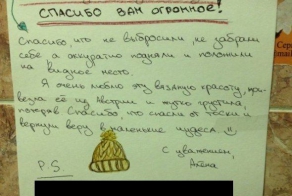 СПАСИБО ВАМ ОГРОМНОЕ!
Спасибо, что не выбросили, не забрали
себе а аккуратно подняли и положили
на видное место.
Я очень люблю эту вязаную красоту, при-
везла её из Австрии и жутко грустила,
потеряв. Спасибо, что спасли от тоски и
вернули веру в маленькие чудеса. :)
С уважением,
Алёна
P.S.
Сер